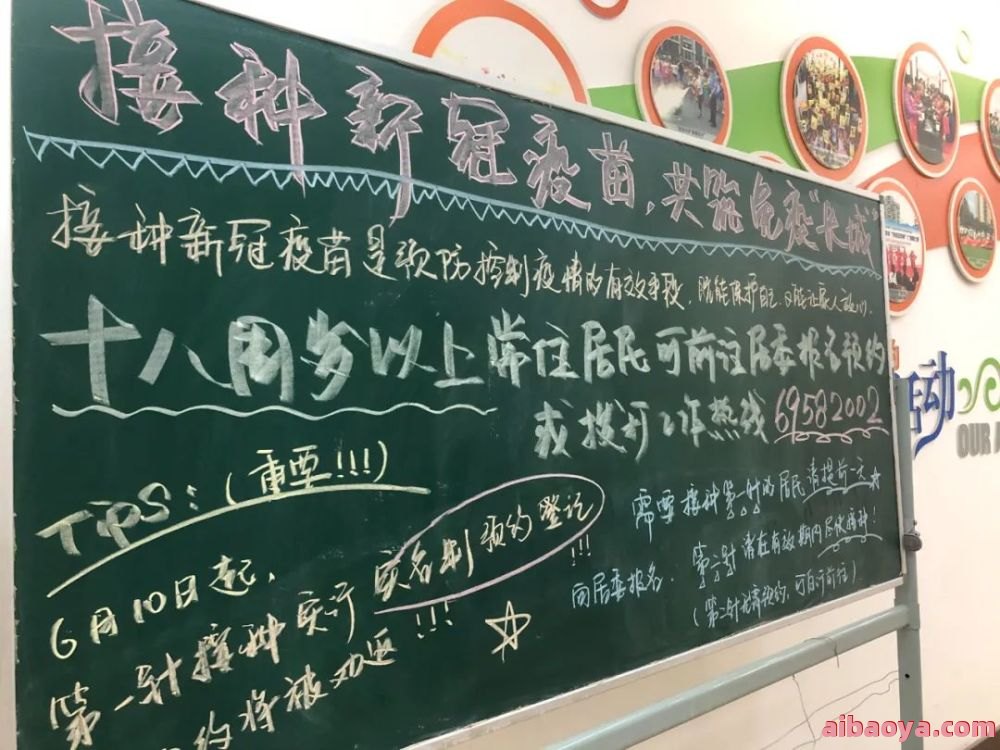 接种新冠疫苗，共筑免疫长城
接种新冠疫苗是预防控制疫情的有效手段，既能保护自己，又能让家人放心。
十八周岁以上常住居民可前往居委报名预约
或拨打工作热线69582002
TiPS：（重要!!!）
6月10日起，
第一针接种实行实名制预约登记!!!
约将被劝返!!!
需要接种第一针的居民请提前一天
向居委报名.
第二针请在有效期内尽快接种！
（第二针无需预约，可自行前往）
活动
OUR
aibaoya.com